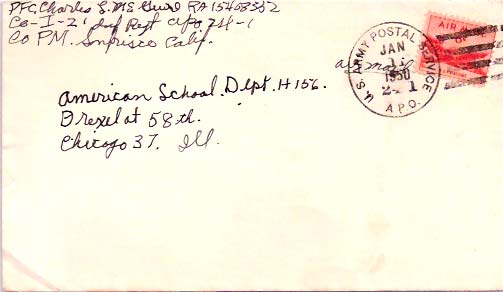 PFC. Charles L. Mc RA 15403352
Co-I-21 Inf Regt APO 24-1
C/o PM. Sanfrisco Calif.
AIR MAIL
air mail
U.S. ARMY POSTAL SERVICE
JAN
1950
2-1
A.P.O.
American School. Dept. H156.
Drexel at 58th.
Chicago 37. Ill.